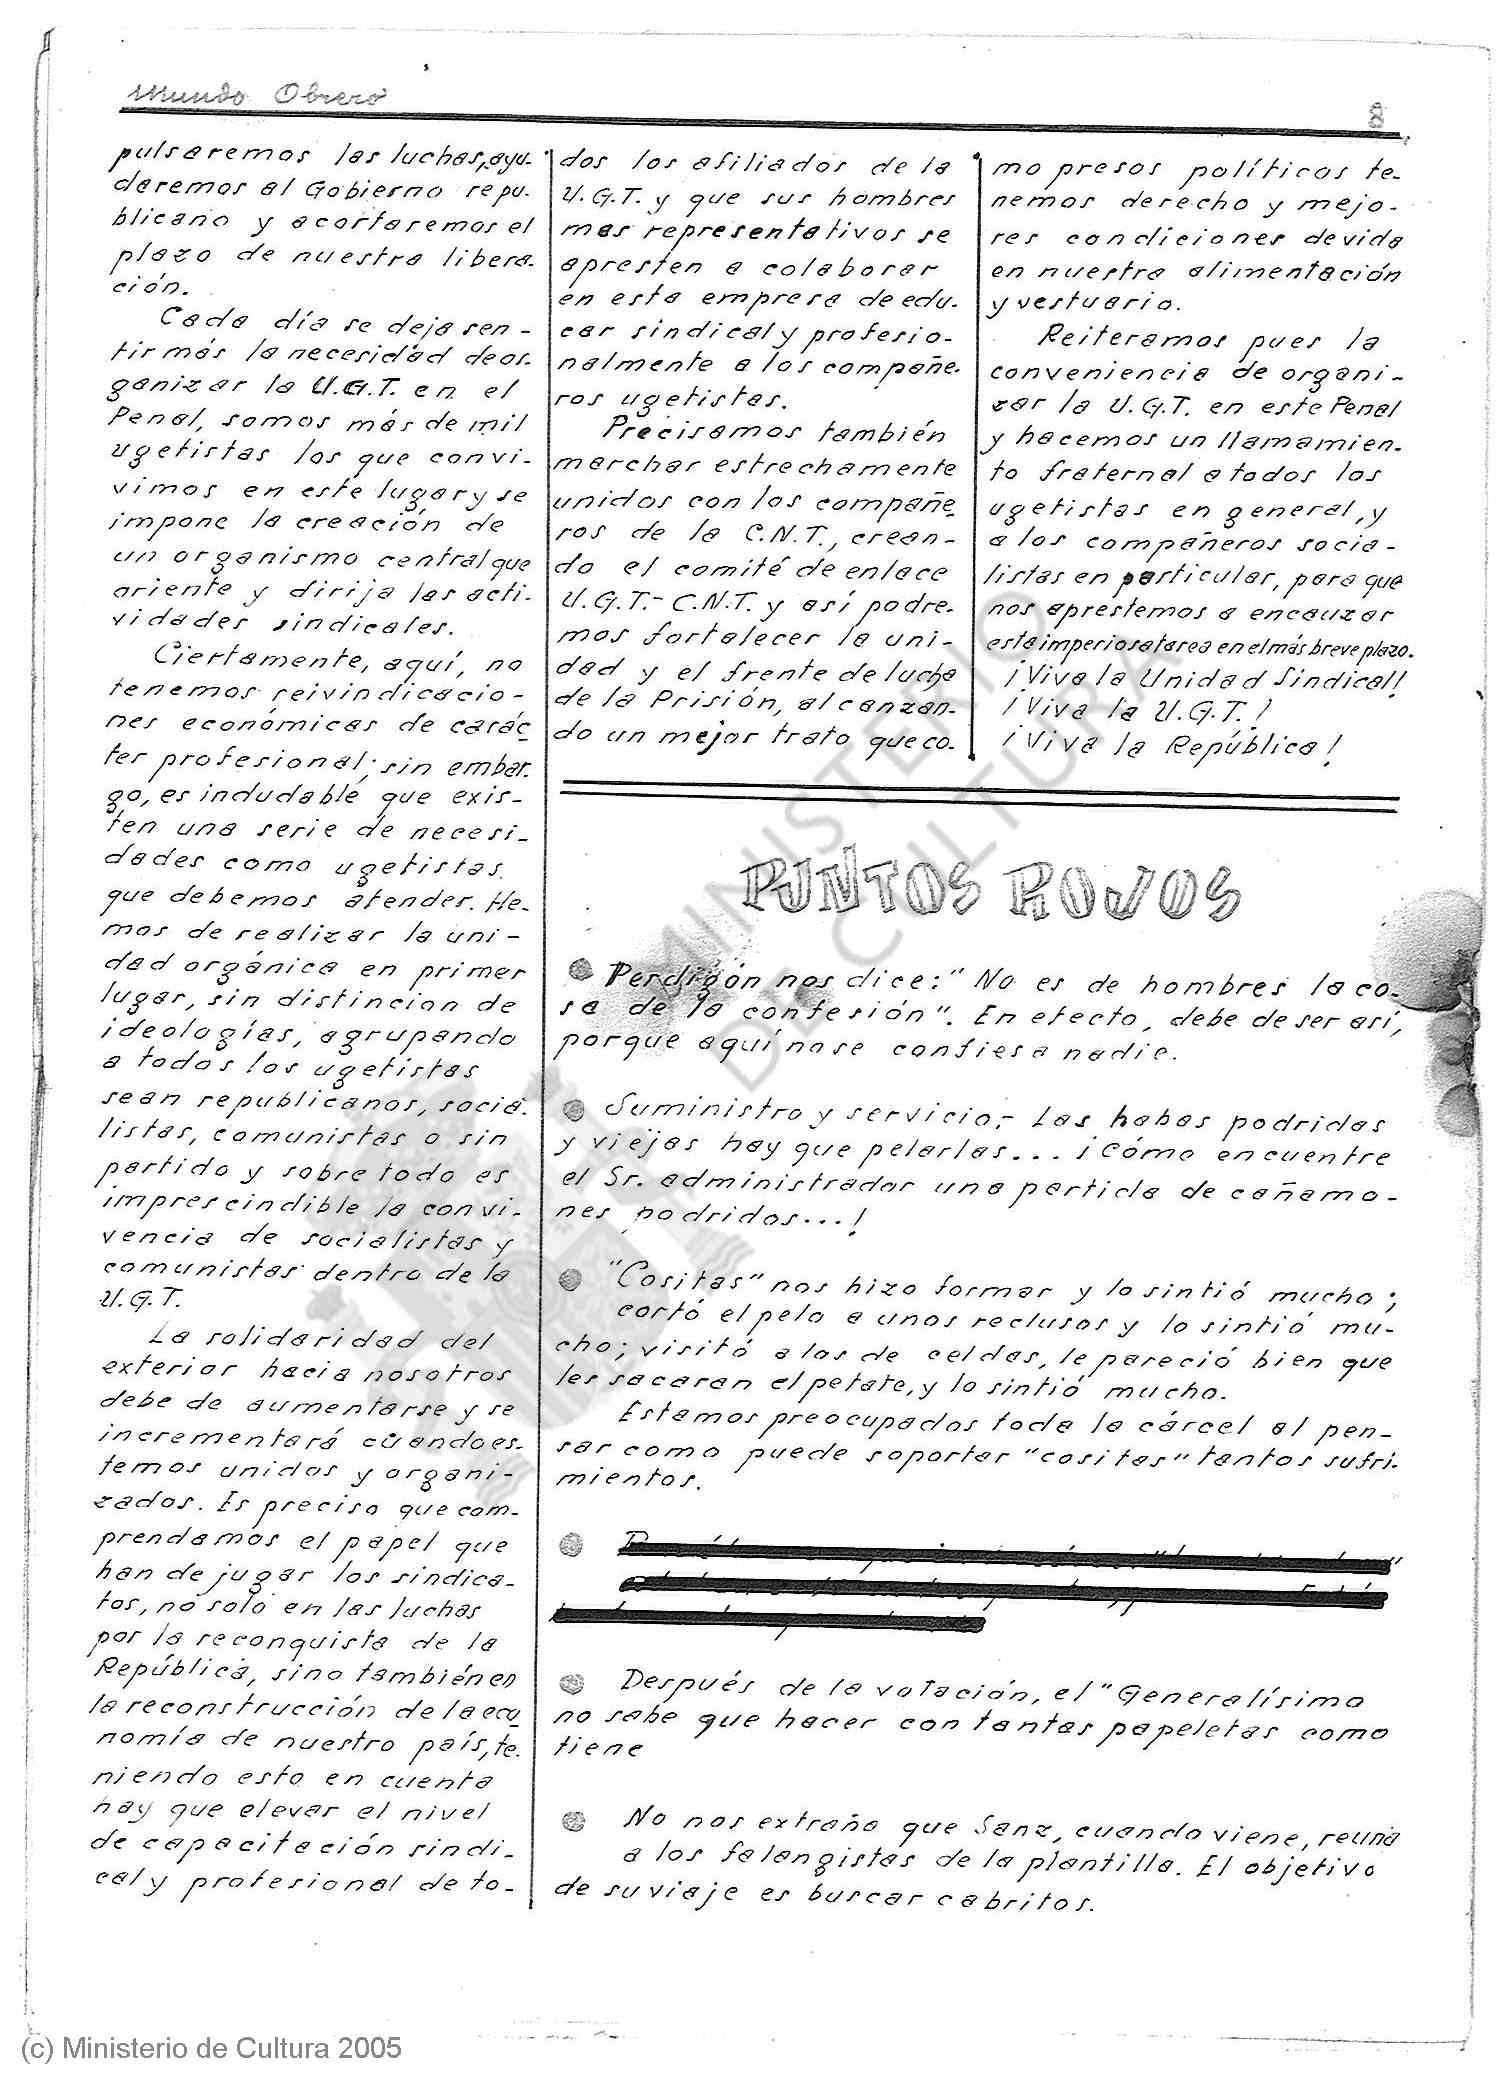 Mundo Obrero
8
pulsaremos las luchas, ayu-
daremos al Gobierno repu-
blicano y acortaremos el
plazo de nuestra libera-
ción.
Cada día se deja sen-
tir más la necesidad de or-
ganizar la U.G.T. en el
Penal, somos más de mil
ugetistas los que convi-
vimos en este lugar y se
impone la creación de
un organismo central que
oriente y dirija las acti-
vidades sindicales.
Ciertamente, aquí, no
tenemos reivindicacio-
nes económicas de carác-
ter profesional; sin embar-
go, es indudable que exis-
ten una serie de necesi-
dades como ugetistas
que debemos atender. He-
mos de realizar la uni-
dad orgánica en primer
lugar, sin distincion de
ideologías, agrupando
a todos los ugetistas
sean republicanos, socia-
listas, comunistas o sin
partido y sobre todo es
imprescindible la convi-
vencia de socialistas y
comunistas dentro de la
U.G.T.
La solidaridad del
exterior hacia nosotros
debe de aumentarse y se
incrementará cuando es-
temos unidos y organi-
zados. Es preciso que com-
prendamos el papel que
han de jugar los sindica-
tos, no solo en las luchas
por la reconquista de la
República, sino también en
la reconstrucción de la eco
nomía de nuestro país, te-
niendo esto en cuenta
hay que elevar el nivel
de capacitación sindi-
cal y profesional de to-
dos los afiliados de la
U.G.T. y que sus hombres
mas representativos se
apresten a colaborar
en esta empresa de edu-
car sindical y profesio-
nalmente a los compañe-
ros ugetistas.
Precisamos también
marchar estrechamente
unidos con los compañe-
ros de la C.N.T., crean-
do el comité de enlace
U.G.T.- C.N.T. y así podre-
mos fortalecer la uni-
dad y el frente de lucha
de la Prisión, alcanzan-
do un mejor trato que co-
mo presos políticos te-
nemos derecho y mejo-
res condiciones de vida
en nuestra alimentación
y vestuario.
Reiteramos pues la
conveniencia de organi-
zar la U.G.T. en este Penal
y hacemos un llamamien-
to fraternal a todos los
ugetistas en general, y
a los compañeros socia-
listas en particular, para que
nos aprestemos a encauzar
esta imperiosa tarea en el más breve plazo.
¡Viva la Unidad Sindical!
¡Viva la U.G.T.!
¡Viva la República!
PUNTOS ROJOS
Perdigón nos dice: "No es de hombres la co-
sa de la confesión". En efecto, debe de ser así,
porque aquí no se confiesa nadie.
Suministro y servicio,- Las habas podridas
y viejas hay que pelarlas... ¡Cómo encuentre
el Sr. administrador una partida de cañamo-
nes podridos...!
"Cositas" nos hizo formar y lo sintió mucho;
cortó el pelo a unos reclusos y lo sintió mu-
cho; visitó a los de celdas, le pareció bien que
les sacaran el petate, y lo sintió mucho.
Estamos preocupados toda la cárcel al pen-
sar como puede soportar "cositas" tantos sufri-
mientos.
Después de la votación, el "Generalísimo
no sabe que hacer con tantas papeletas como
tiene
No nos extraña que Sanz, cuando viene, reuna
a los falangistas de la plantilla. El objetivo
de su viaje es buscar cabritos.
MINISTERIO
DE CULTURA
(c) Ministerio de Cultura 2005